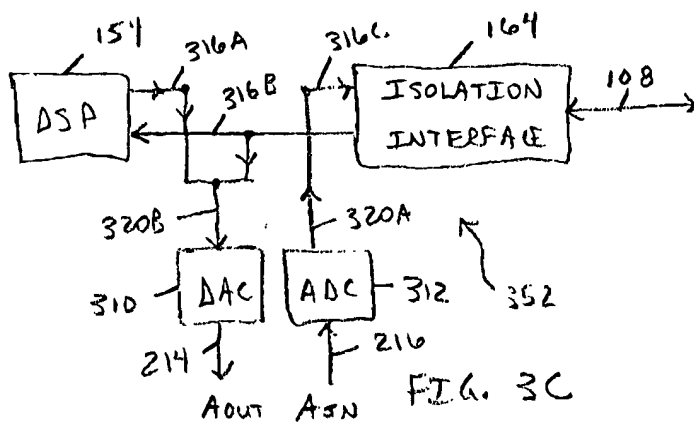 154
316A
316C
164
316B
108
DSP
ISOLATION
INTERFACE
320B
320A
310
DAC
ADC
312
352
214
216
AOUT
AIN
FIG. 3C